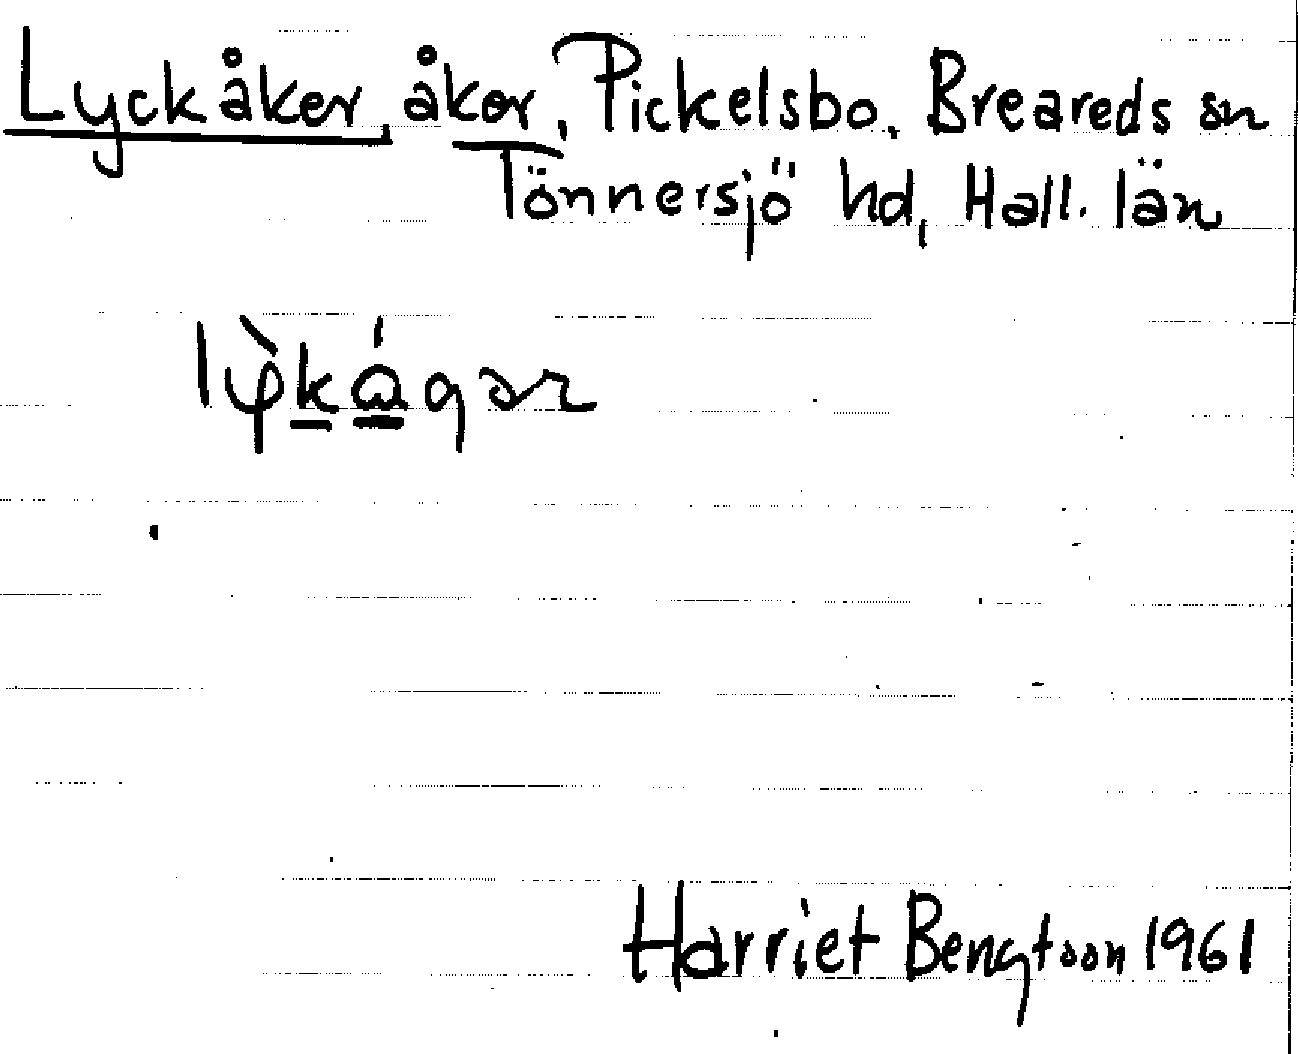 Lyckåker, åker, Pickelsbo, Breareds sn
Tönnersjö hd, Hall. län
lỳkágər
Harriet Bengtson 1961